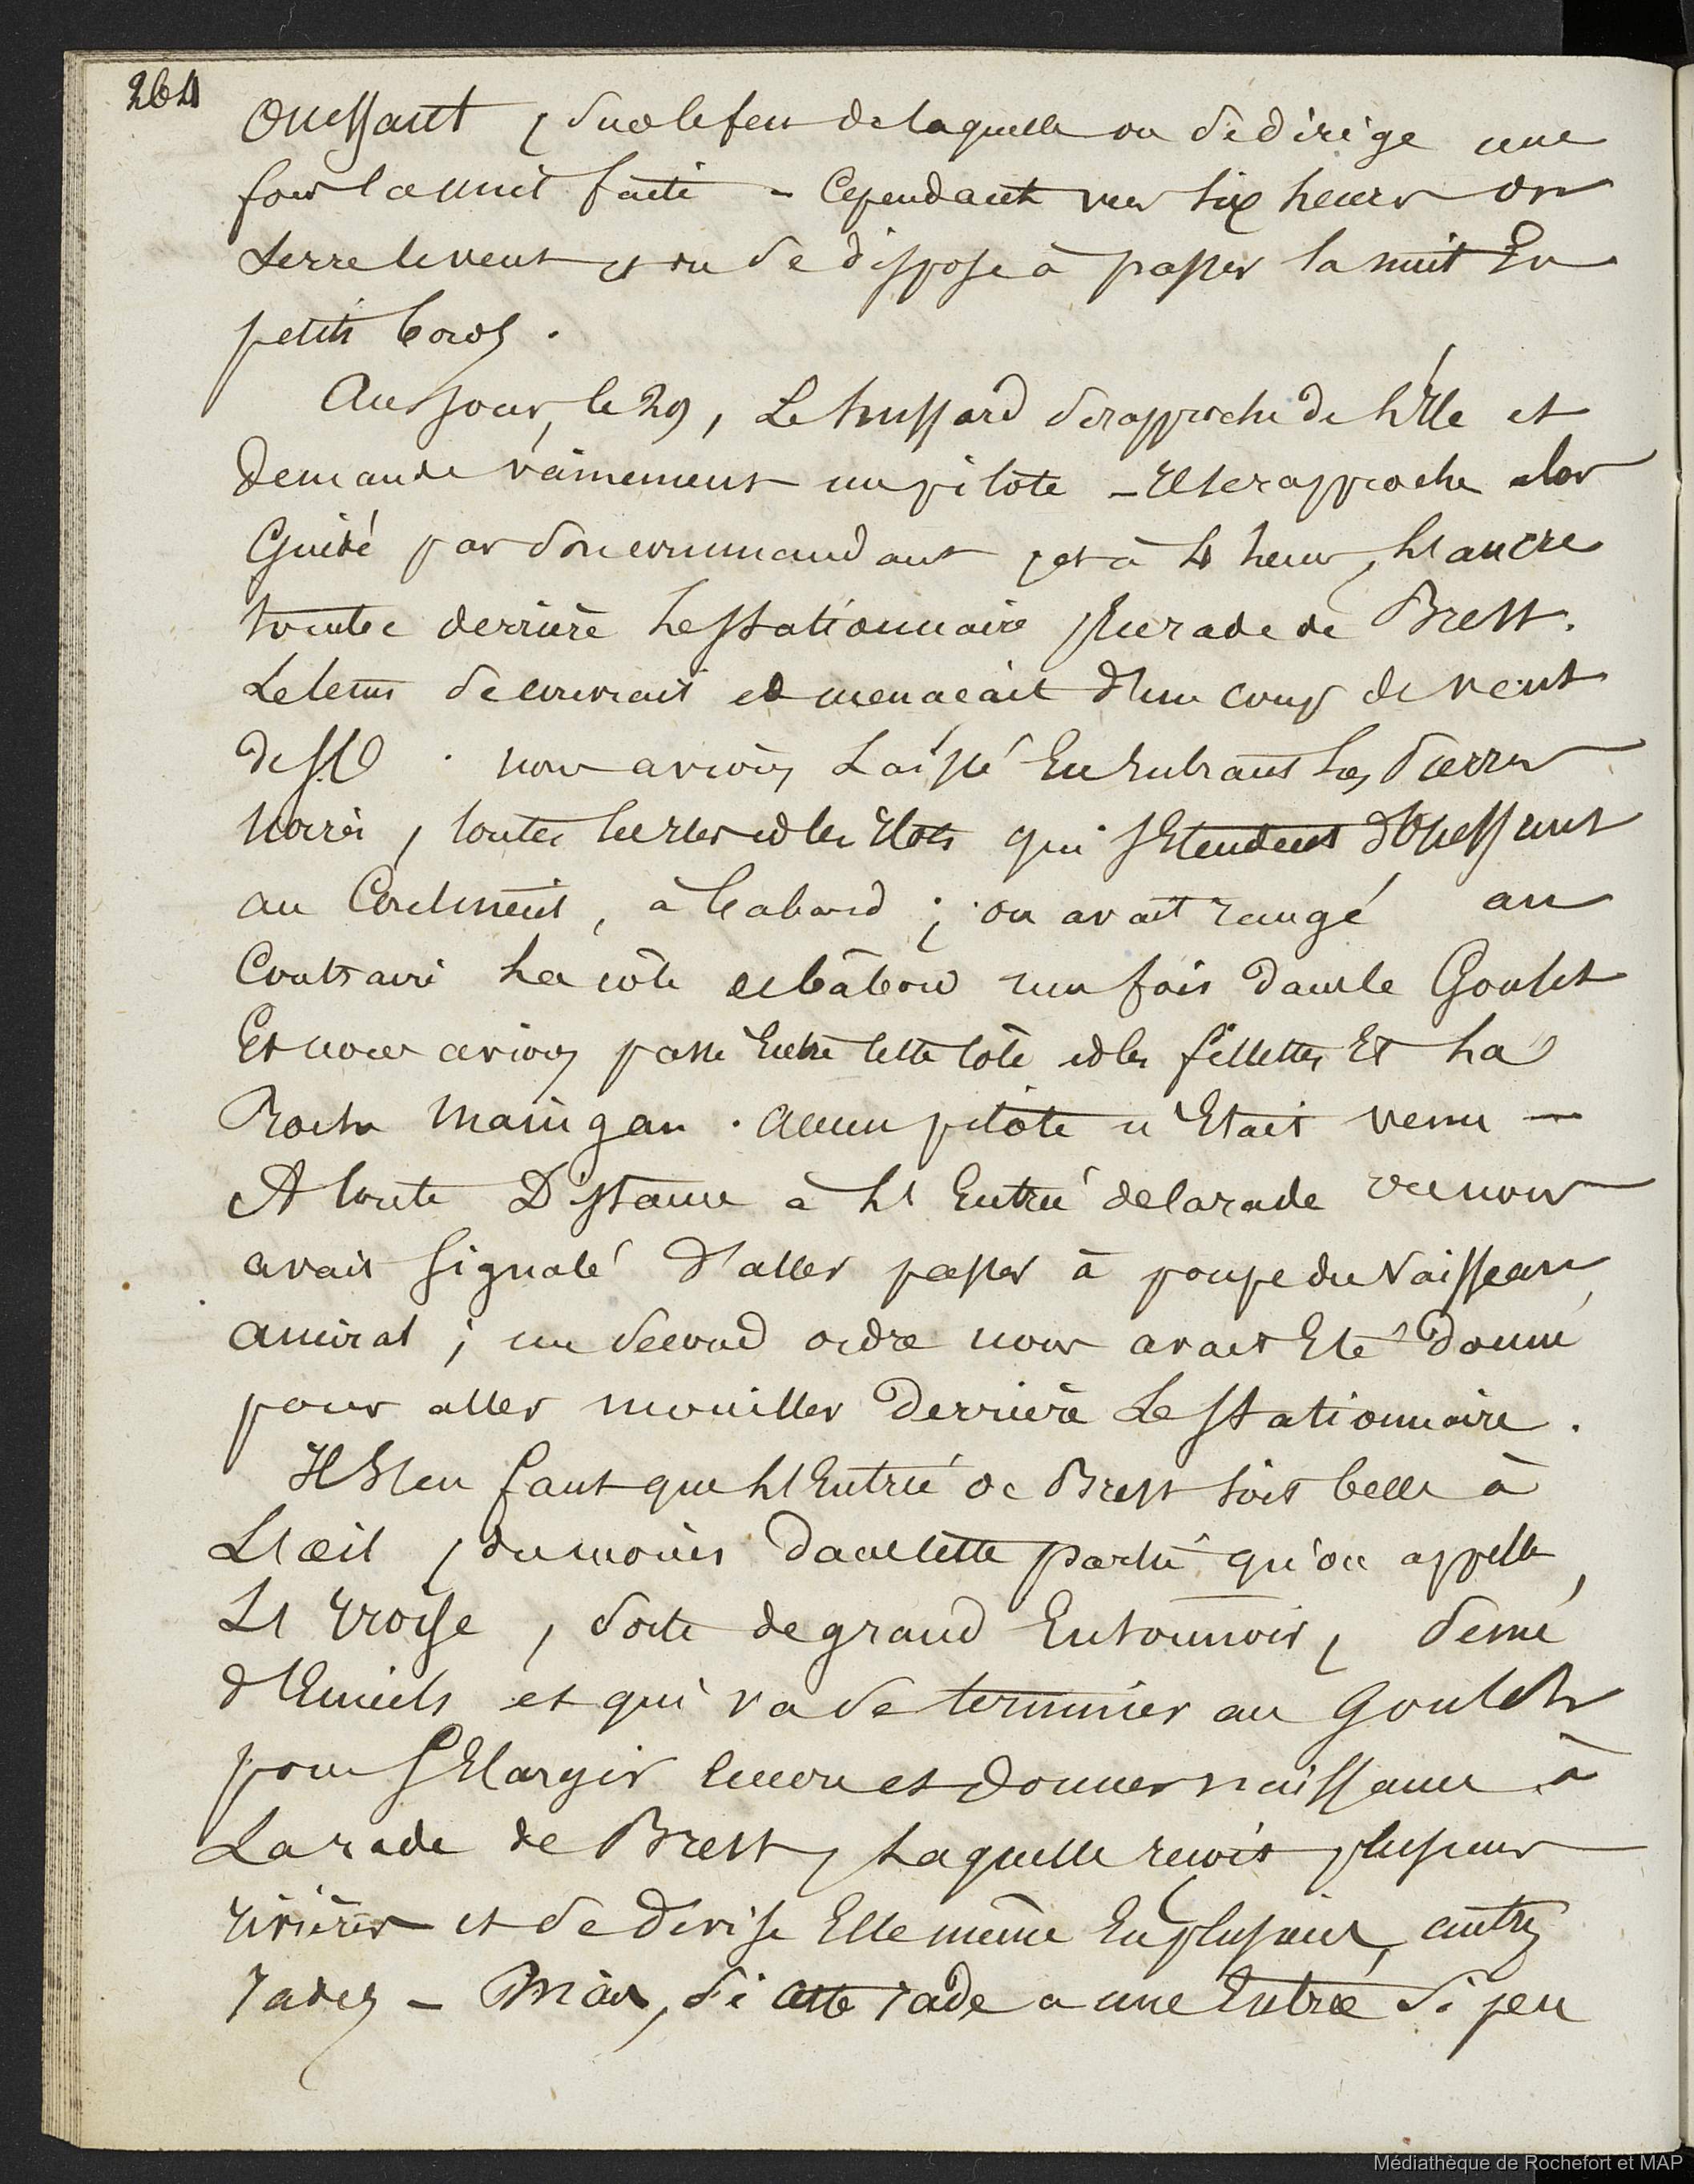 264
Ouessant, sur le feu de laquelle on se dirige une
fois la nuit faite - Cependant vers six heures on
serre le vent et on se dispose à passer la nuit En
petits bords.
Au jour, le 29, Le hussard se rapproche de l'Ile et
demande vainement un pilote - Il se rapproche alors
Guidé par son commandant, et à 4 heures, l'ancre
tombe derrière le stationnaire sur rade de Brest.
Le tems se couvrait et menaçait d'un coup de vent
de S.O. nous avions Laissé En Entrant les Pierres
noires, toutes les Iles et les Ilots qui s'Etendent d'Ouessant
au Continent, à babord; on avait rangé au
Contraire La côte de bâbord une fois dans le Goulet
Et nous avions passé Entre cette côte et les fillettes Et La
Roche Maingan. Aucun pilote n'Etait venu -
A toute Distance à l'Entrée de la rade on nous
avait signalé d'aller passer à poupe du Vaisseau
amiral; un second ordre nous avait Eté donné
pour aller mouiller derrière Le stationnaire.
Il S'en faut que l'Entrée de Brest soit belle à
L'œil, du moins dans cette partie qu'on appelle
L'Iroise, sorte de grand Entonnoir, semé
d'Ecueils et qui va se terminer au Goulet
pour s'Elargir encore et donner naissance à
La rade de Brest, Laquelle reçoit plusieurs
rivières et se divise Elle même En plusieurs autres
rades - Mais, si cette rade a une Entrée si peu
Médiathèque de Rochefort et MAP